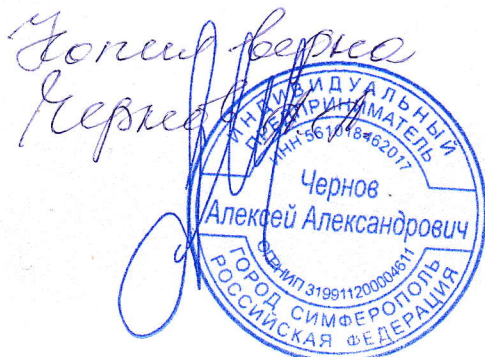 Копия верна
Чернов А.А.
ИНДИВИДУАЛЬНЫЙ
ПРЕДПРИНИМАТЕЛЬ
ИНН 561018462017
Чернов
Алексей Александрович
ОГРНИП 319911200004611
ГОРОД СИМФЕРОПОЛЬ
РОССИЙСКАЯ ФЕДЕРАЦИЯ